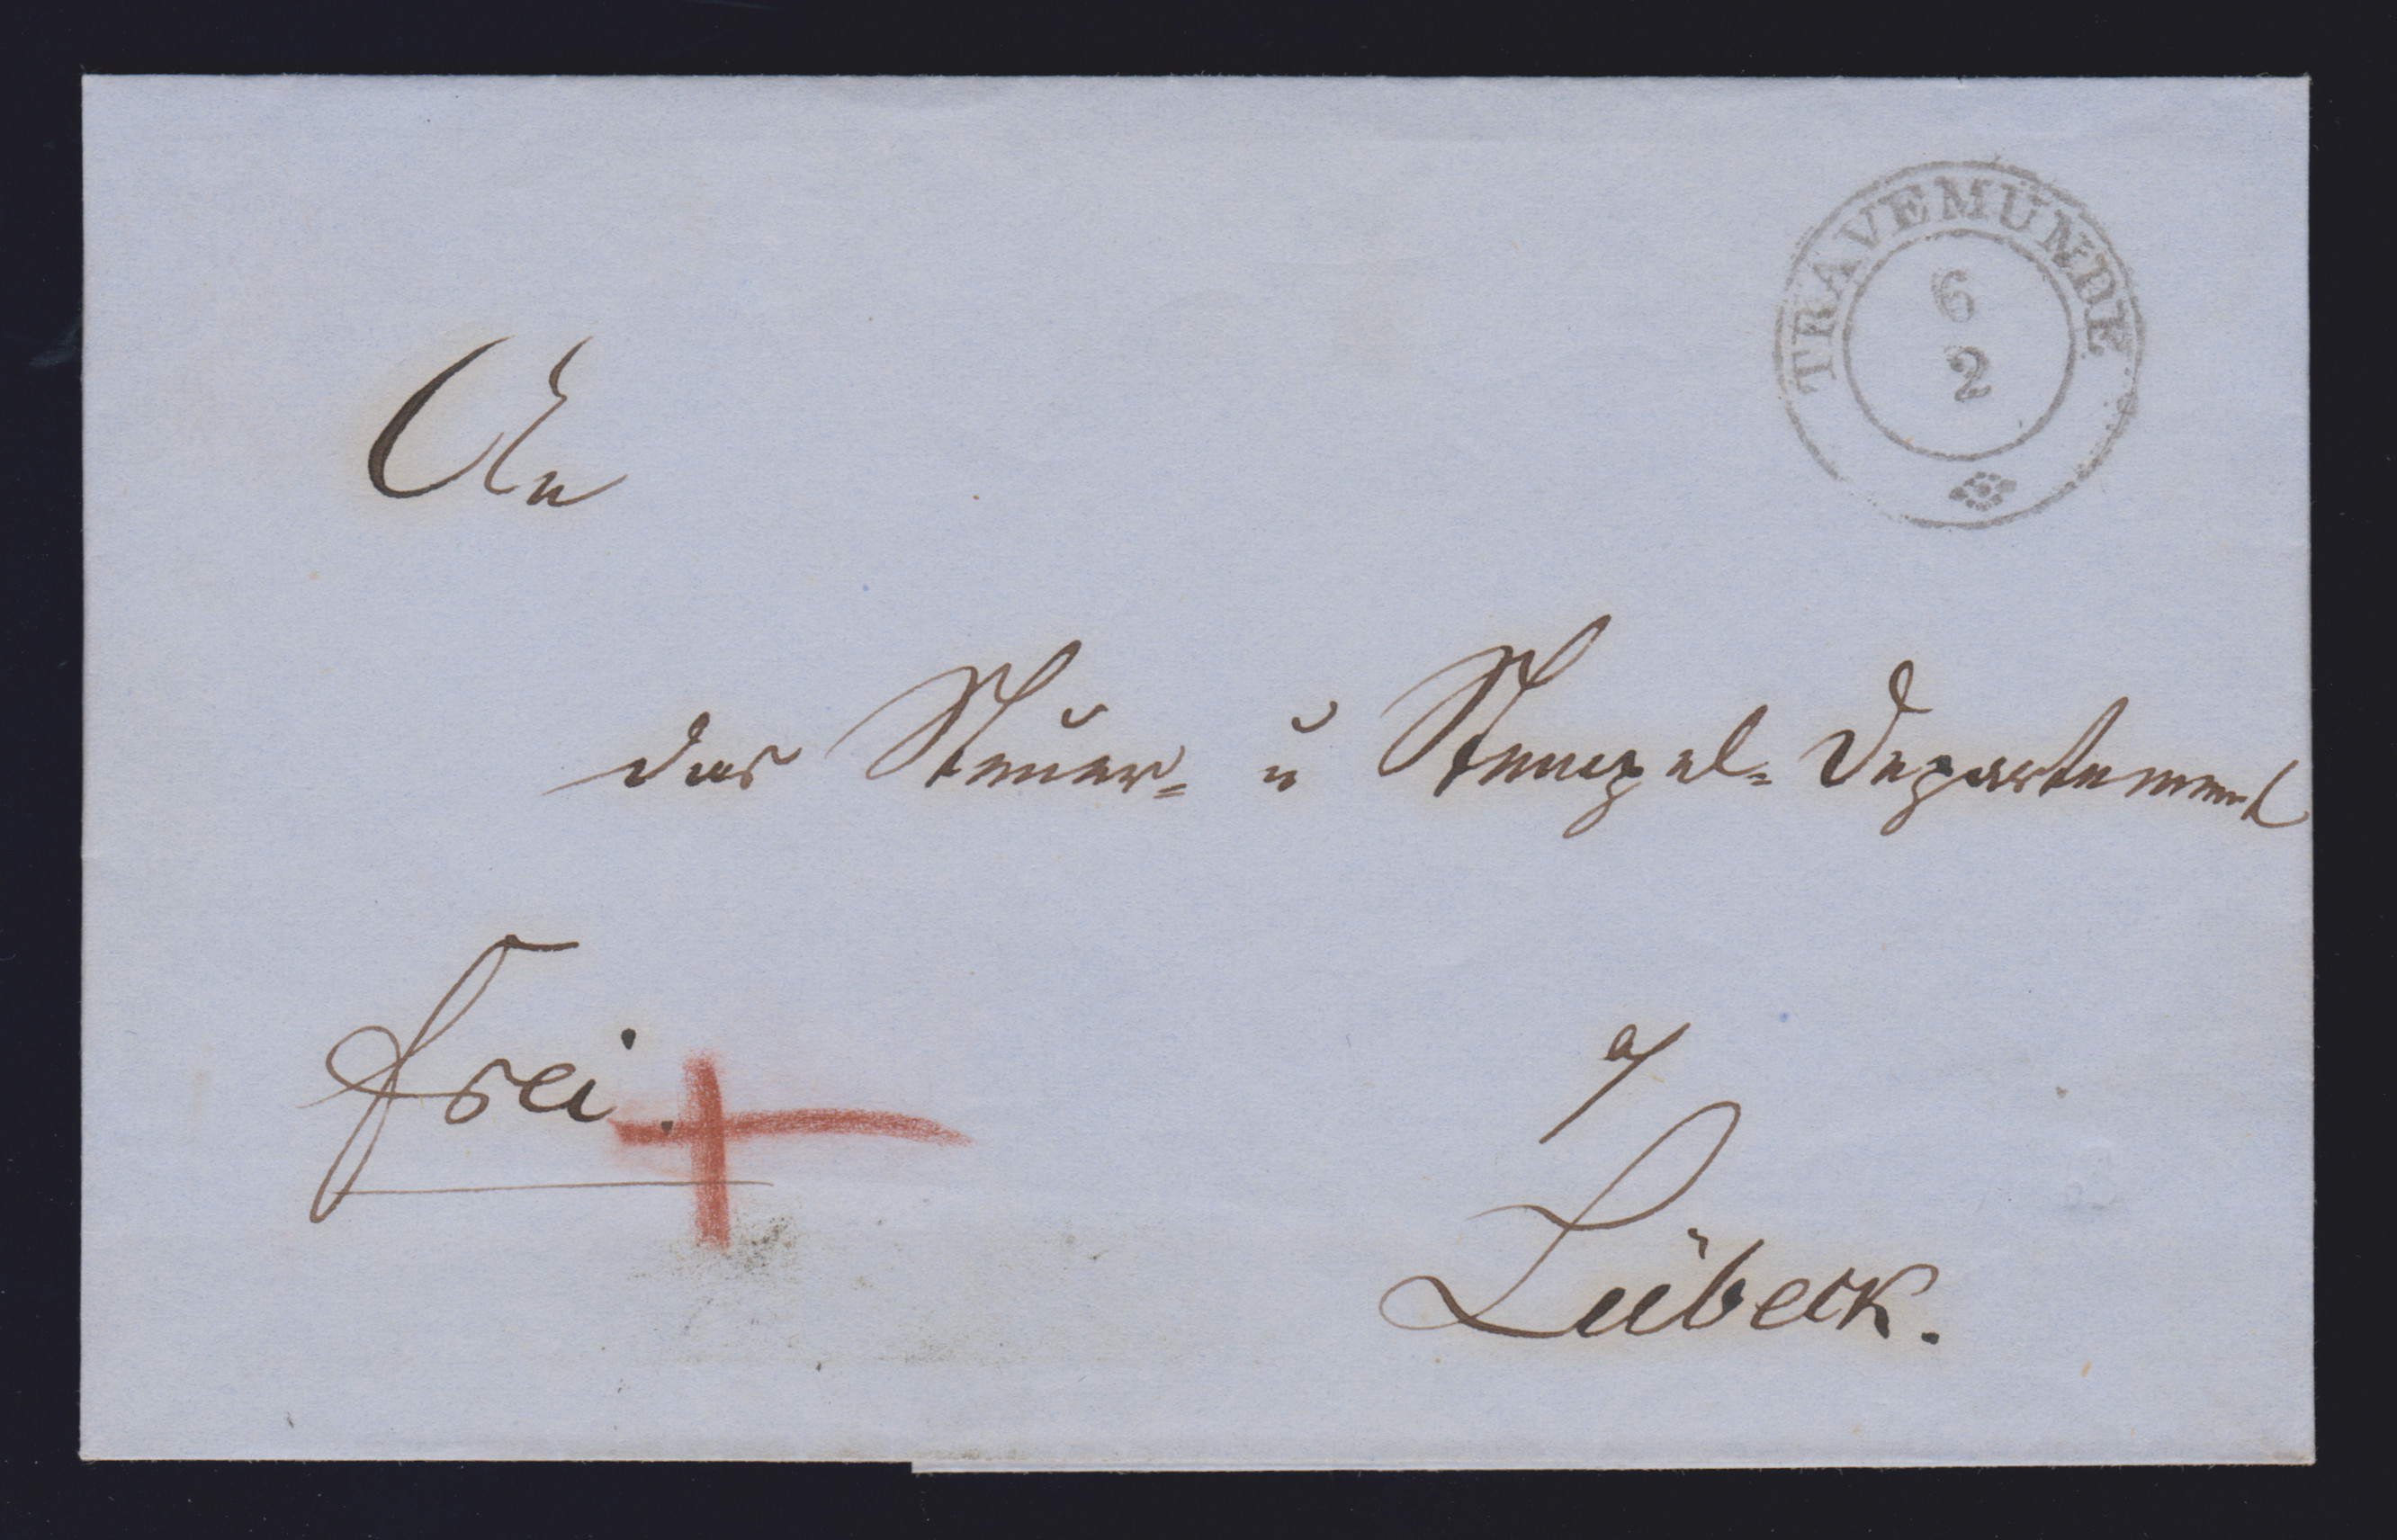 TRAVEMÜNDE
6
2
An
das Steuer- u Stempel-Departement
frei.
a/
Lübeck.